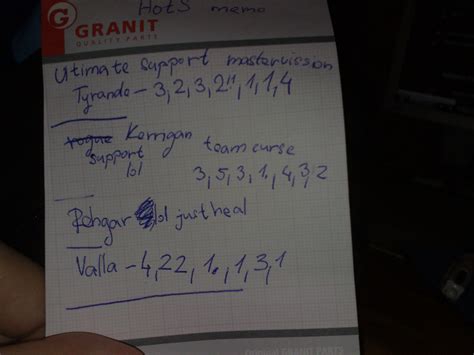 HotS memo
GRANIT
QUALITY PARTS
Utimate support mastervission
Tyrande - 3, 2, 3, 2!!, 1, 1, 4
rogue Kerrigan teamcurse
support
lol 3, 5, 3, 1, 4, 3, 2
Rehgar lol just heal
Valla - 4, 22, 1, 1, 3, 1
GRANIT PARTS